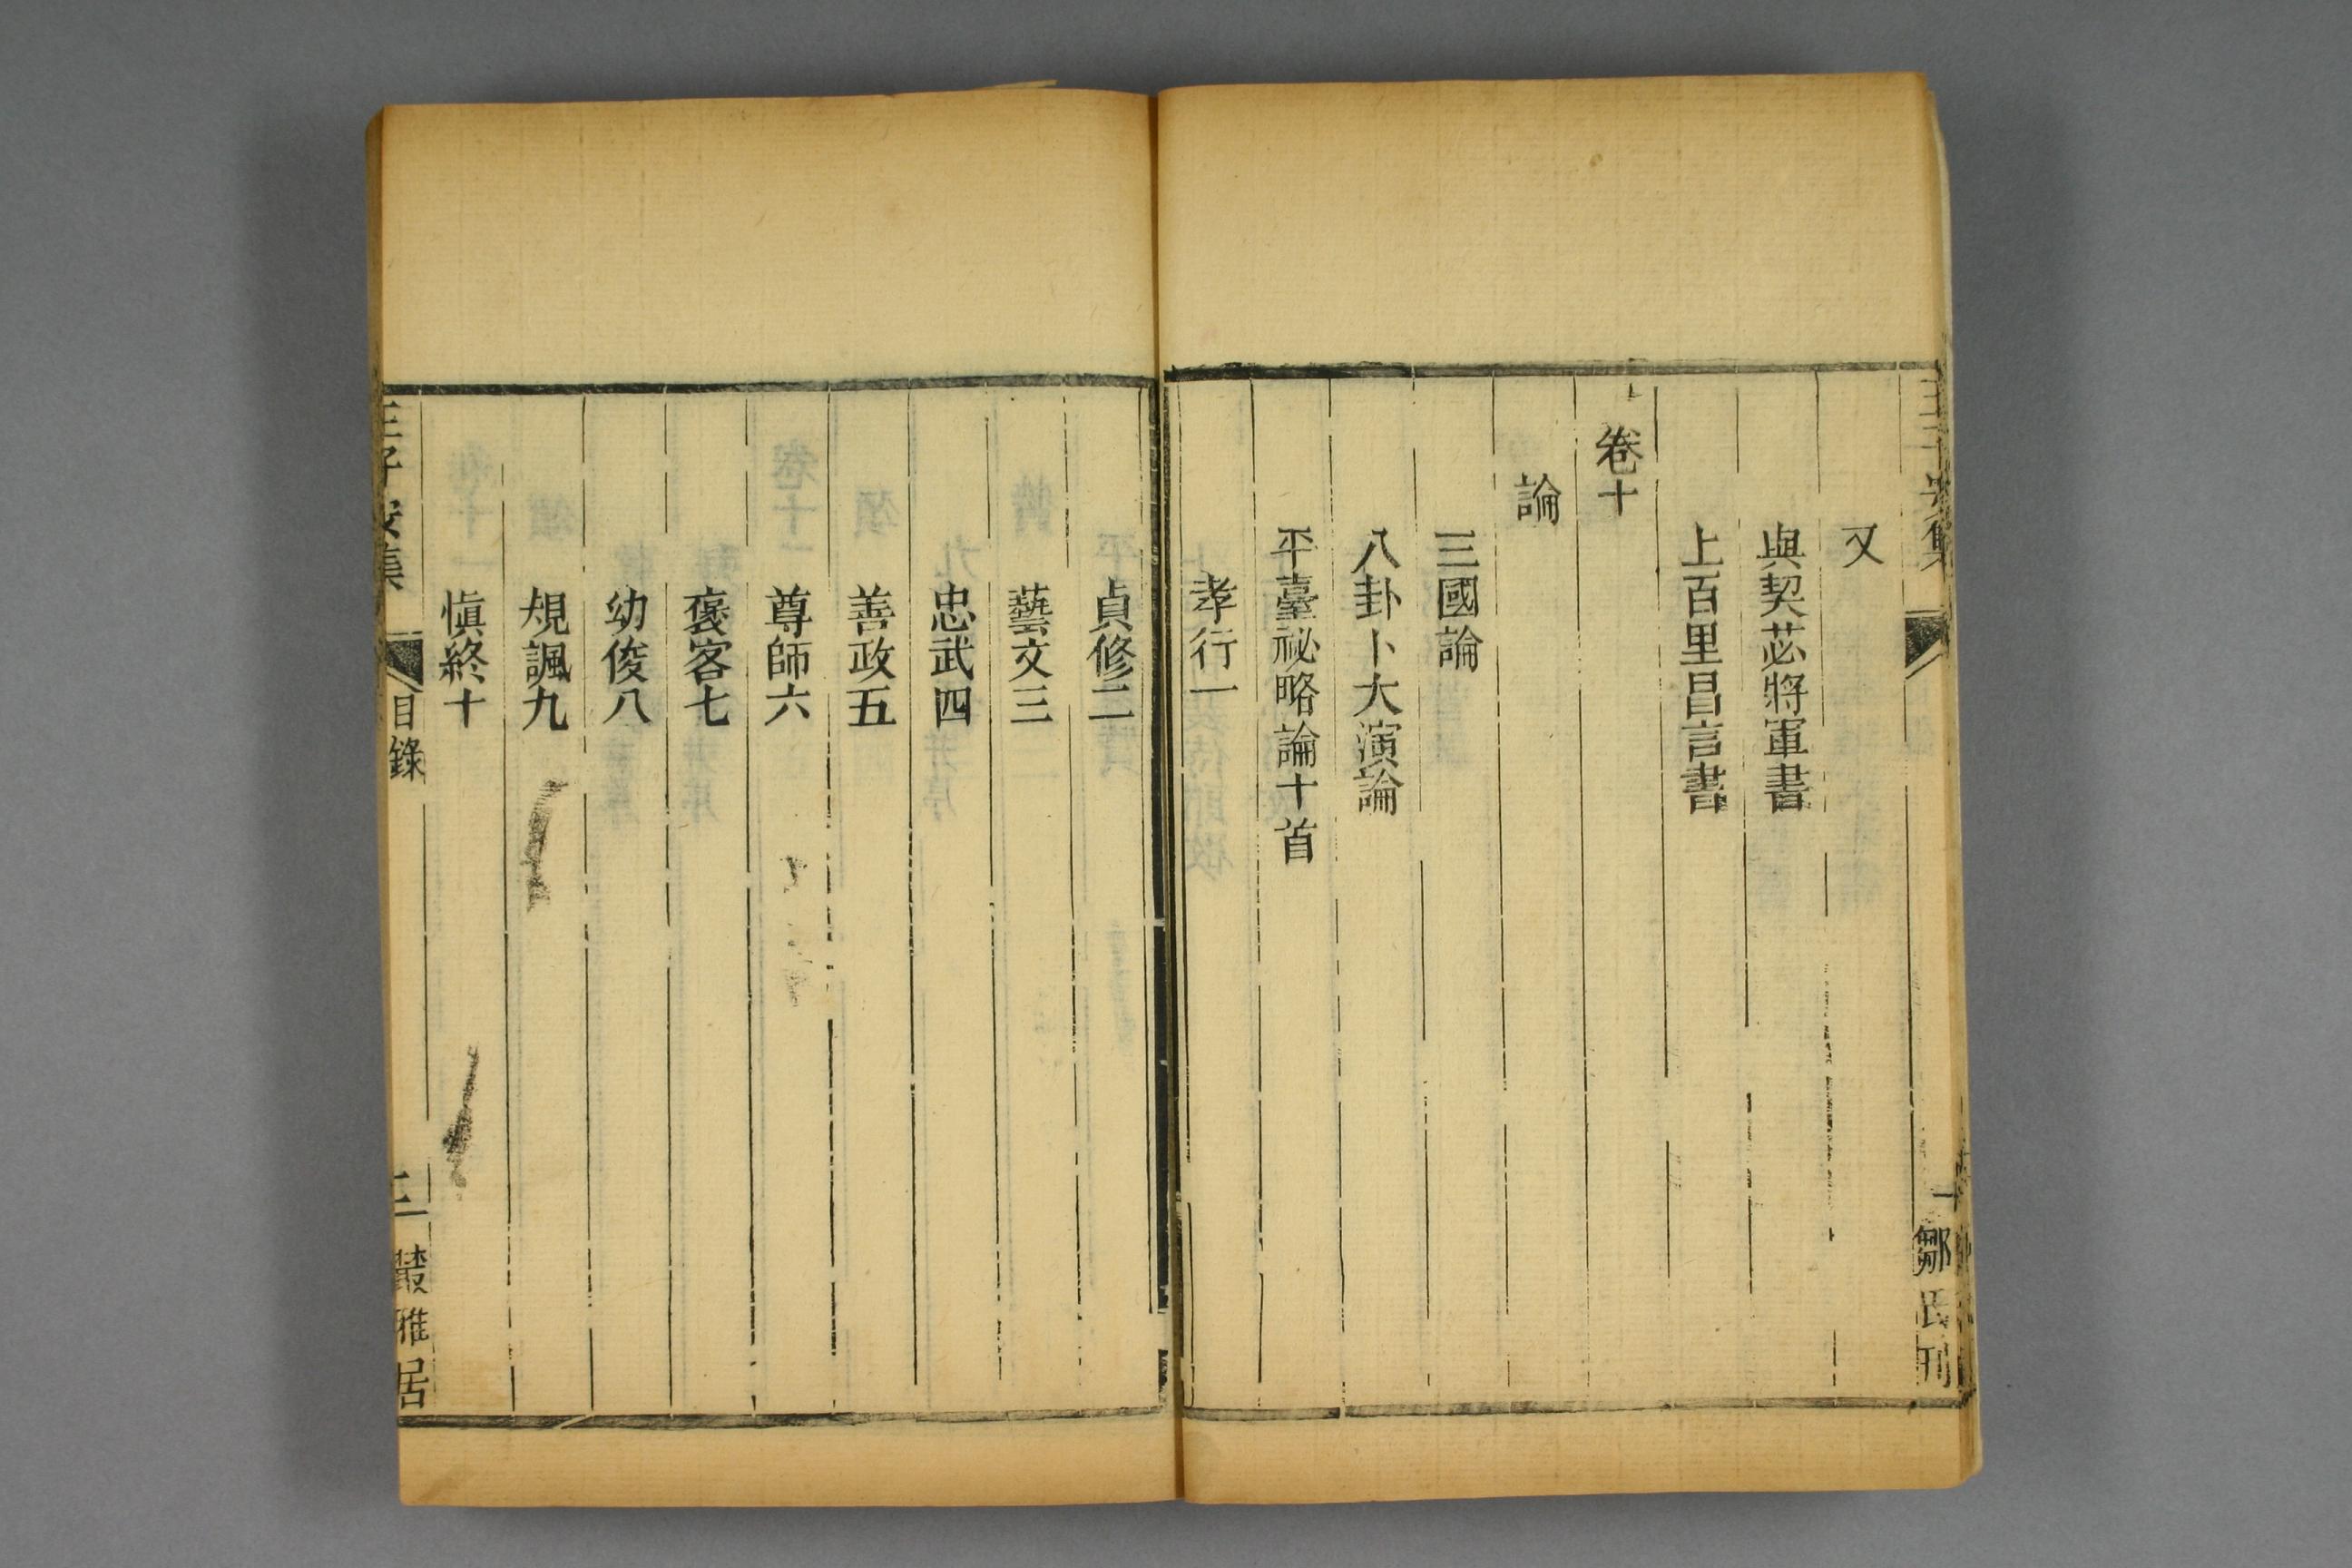 又
與契苾將軍書
上百里昌言書
卷十
論
三國論
八卦卜大演論
平臺祕略論十首
孝行一
貞修二
藝文三
忠武四
善政五
尊師六
褒客七
幼俊八
規諷九
愼終十
王子安集
目錄
叢雅居
鄒氏刊